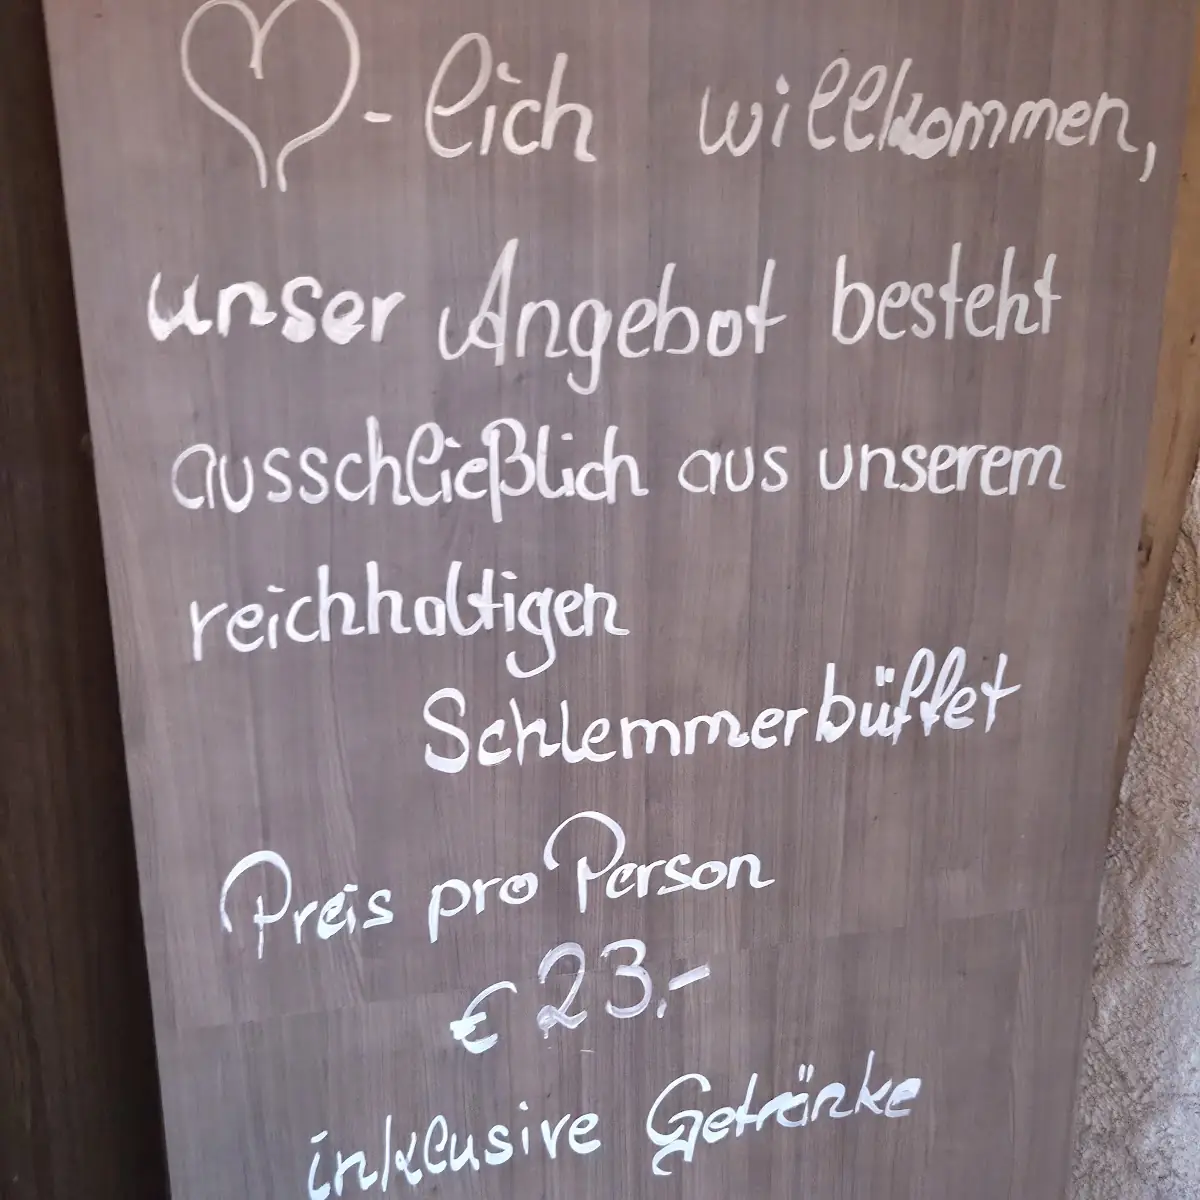 ♡-lich willkommen,
unser Angebot besteht
ausschließlich aus unserem
reichhaltigen
Schlemmerbüffet
Preis pro Person
€ 23,-
inklusive Getränke